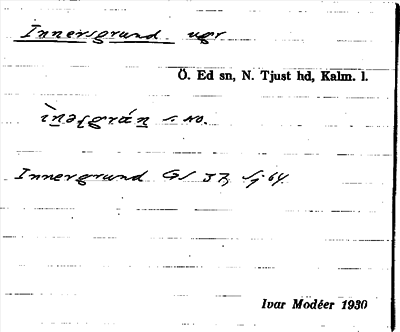 Innersgrund ugr
Ö. Ed sn, N. Tjust hd, Kalm. l.
s. no.
Innergrund Gs
Ivar Modéer 1930